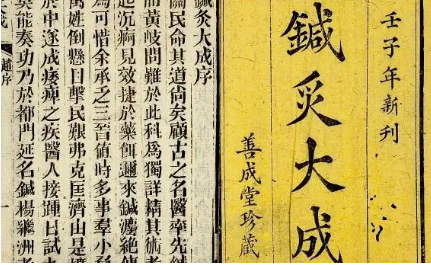 壬子年新刊
鍼灸大成
善成堂珍藏
鍼灸大成序
關民命其道尙矣顧古之名醫率先鍼
而黃岐問難於此科為獨詳精其術者
起沉痾見效捷於藥餌邇來鍼灸絶傳
為可惜余承乏三晉值時多事羣小
萬姓倒懸目擊民艱弗克匡濟由是
於中遂成痿痺之疾醫人接踵日試
莫能奏功乃於都門延名鍼楊繼洲者
趙序